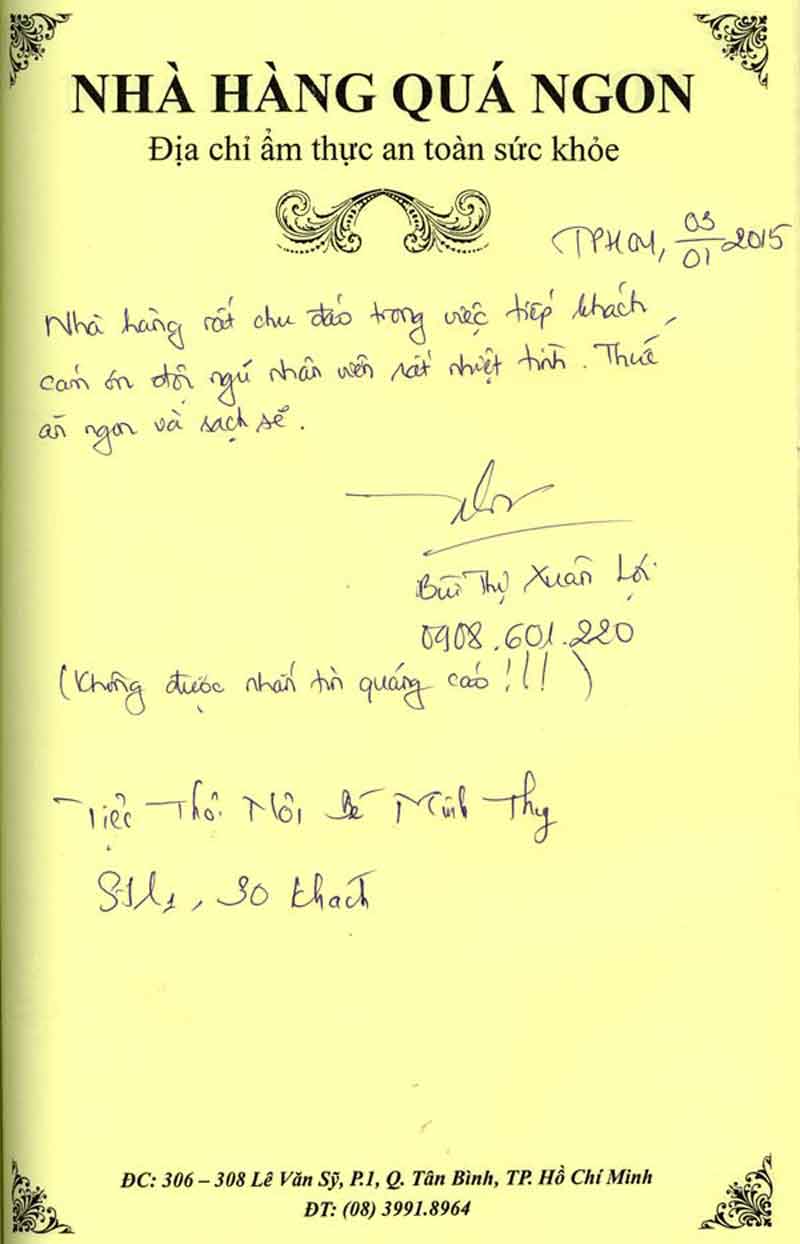 NHÀ HÀNG QUÁ NGON
Địa chỉ ẩm thực an toàn sức khỏe
TPHCM, 03/01 2015
Nhà hàng rất chu đáo trong việc tiếp khách,
cảm ơn đội ngũ nhân viên rất nhiệt tình. Thức
ăn ngon và sạch sẽ.
Bùi Thị Xuân Lợi
0908.601.220
(Không được nhắn tin quảng cáo !!!)
Tiệc Thôi Nôi Bé Minh Thy
30 khách
ĐC: 306 – 308 Lê Văn Sỹ, P.1, Q. Tân Bình, TP. Hồ Chí Minh
ĐT: (08) 3991.8964